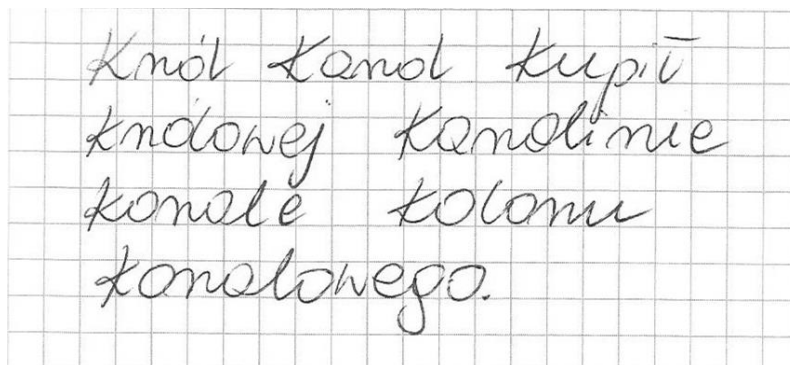 Król Karol kupił
królowej Karolinie
korale koloru
koralowego.